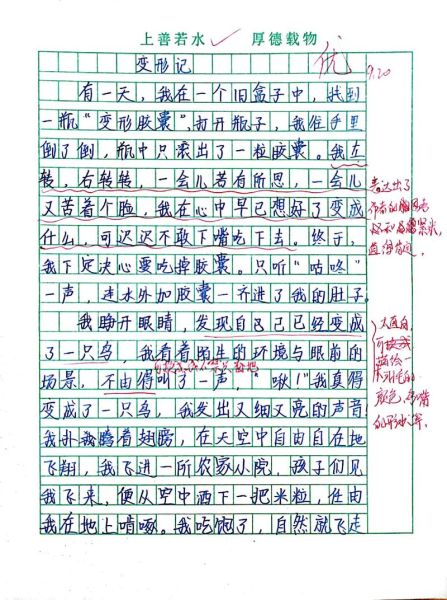 上善若水 厚德载物
优
9.20
变形记
有一天，我在一个旧盒子中，找到
一瓶“变形胶囊”，打开瓶子，我往手里
倒了倒，瓶中只滚出了一粒胶囊。我左
转，右转转，一会儿若有所思，一会儿
又苦着个脸，我在心中早已想好了变成
什么，可迟迟不敢下嘴吃下去。终于，
我下定决心要吃掉胶囊。只听“咕咚”
一声，连水外加胶囊一齐进了我的肚子。
我睁开眼睛，发现自己已经变成
了一只鸟，我看着陌生的环境与眼前的
场景，不由得叫了一声，“啾！”我真得
变成了一只鸟，我发出又细又亮的声音
我扑腾着翅膀，在天空中自由自在地
飞翔，我飞进一所农家小院，孩子们见
我飞来，便从空中洒下一把米粒，任由
我在地上啃啄。我吃饱了，自然就飞走
表达出了
值得肯定。
描绘一
颜色，